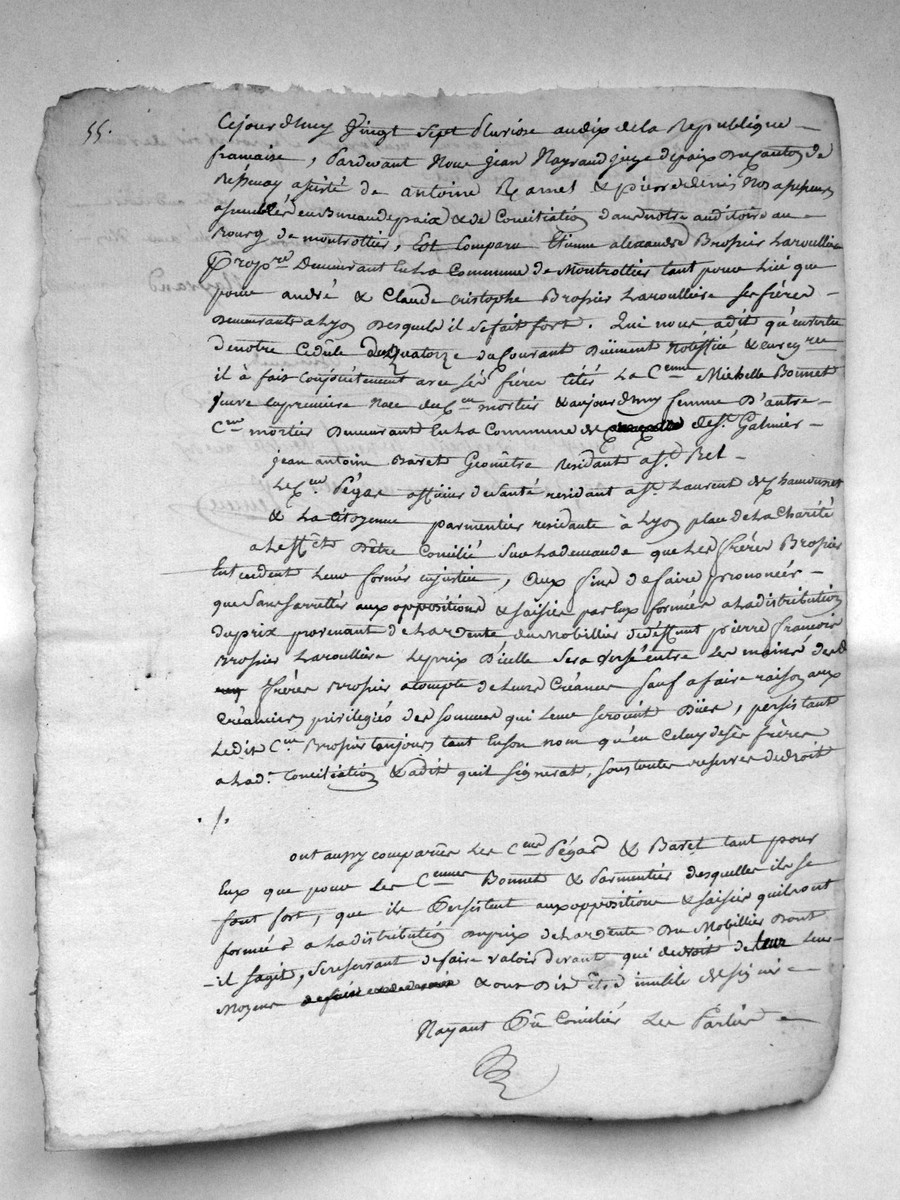 55.
Cejourdhuy Vingt sept pluviose an dix de la Republique
francaise, Pardevant Nous jean Nayrand juge de paix du Canton de
assisté de antoine Ramel & pierre denis Nos assesseurs
assemblés en Bureau de paix & de Conciliation dans notre auditoire au
Bourg de montrottier, Est Comparu Etienne alexandre Brossier Laroulliere
Propre. Demeurant En La Commune de Montrottier tant pour lui que
pour andré & Claude Cristophe Brossier Laroulliere ses frères
Demeurants a Lyon Desquels il se fait fort. Qui nous a dit qu'en vertu
de notre Cédule du quatorze du Courant Düement Notifiée & enregrée
il à fait Conjoictement avec ses frères Cités La Cenne Michelle Bonnet
veuve en première Noce du Cn mortier & aujourdhuy femme D'autre
Cen mortier Demeurant En La Commune de de St. Galmier
jean antoine Baret Geomêtre Residant a St. Bel
Le Cen Pégar officier de santé residant a St. Laurent de Chamousset
& La Citoyenne parmentier residante à Lyon place de La Charité
a Leffêt D'être Concilié Sur La demande que Les frères Brossier
Entendent Leur former en justice, aux fins de faire prononcer
que Sans s'arretter aux oppositions & saisies par Eux formées a La distribution
du prix provenant de La Vente du Mobillier de deffunt pierre francois
Brossier Laroulliere Le prix D'icelle Sera Versé entre Les mains des d.
frères Brossier a Compte de Leurs Créances sauf a faire raison aux
Créanciers privilegiés des Sommes qui Leur seroient Dües, persistant
Ledit Cen Brossier toujours tant En son nom qu'en Celuy de ses frères
a La d. Conciliation & a dit qu'il signerat, sous toutes reserves de droit
./.
ont aussy comparües Les Cens Pégar & Baret tant pour
Eux que pour Les Cennes Bonnet & Parmentier desquelles ils se
font fort, que ils Persistent aux oppositions & saisies quils ont
formées a La distribution du prix de La Vente Du Mobillier Dont
il sagit, se reservant de faire valoir devant qui de droit Leurs
Moyens & ont Dit Etre inutile de signer
Nayant Pû Concilier Les Parties